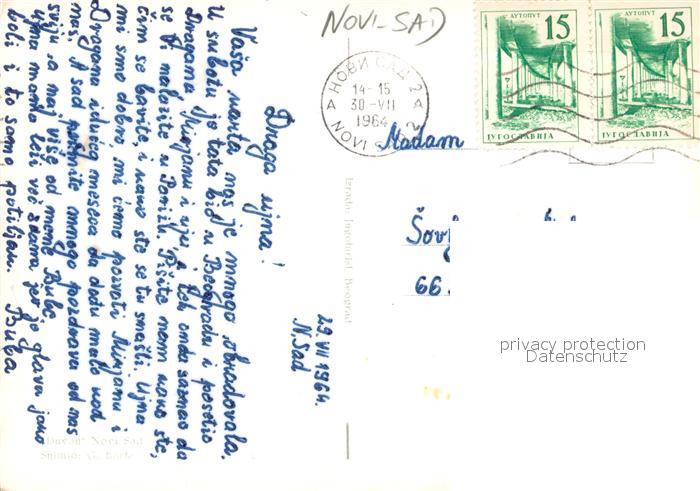 NOVI-SAD
АУТОПУТ 15
ЈУГОСЛАВИЈА
АУТОПУТ 15
ЈУГОСЛАВИЈА
НОВИ САД 2
14-15
30-VII
1964
NOVI
Madam
66
privacy protection
Datenschutz
Izradio Jugoturist Beograd
29. VII 1964.
N. Sad
Draga ujna!
Vaša karta nas je mnogo obradovala.
U subotu je tata bio u Beogradu i posetio
Dragana Mirjanu i uju, i tek onda saznao da
se Vi nalazite u Parizu. Pišite nam kako ste,
čim se bavite, kako ste se tu snašli. Ujna
mi smo dobro, mi ćemo pozvati Mirjanu i
Dragana idućeg meseca da dođu malo kod
nas. A sad primite mnogo pozdrava od nas
sviju a naj više od mene Bube
Ujna mama leži već dana jer je glava jako
boli i to samo potiljak. Buba
Novi Sad
Snimio: G.